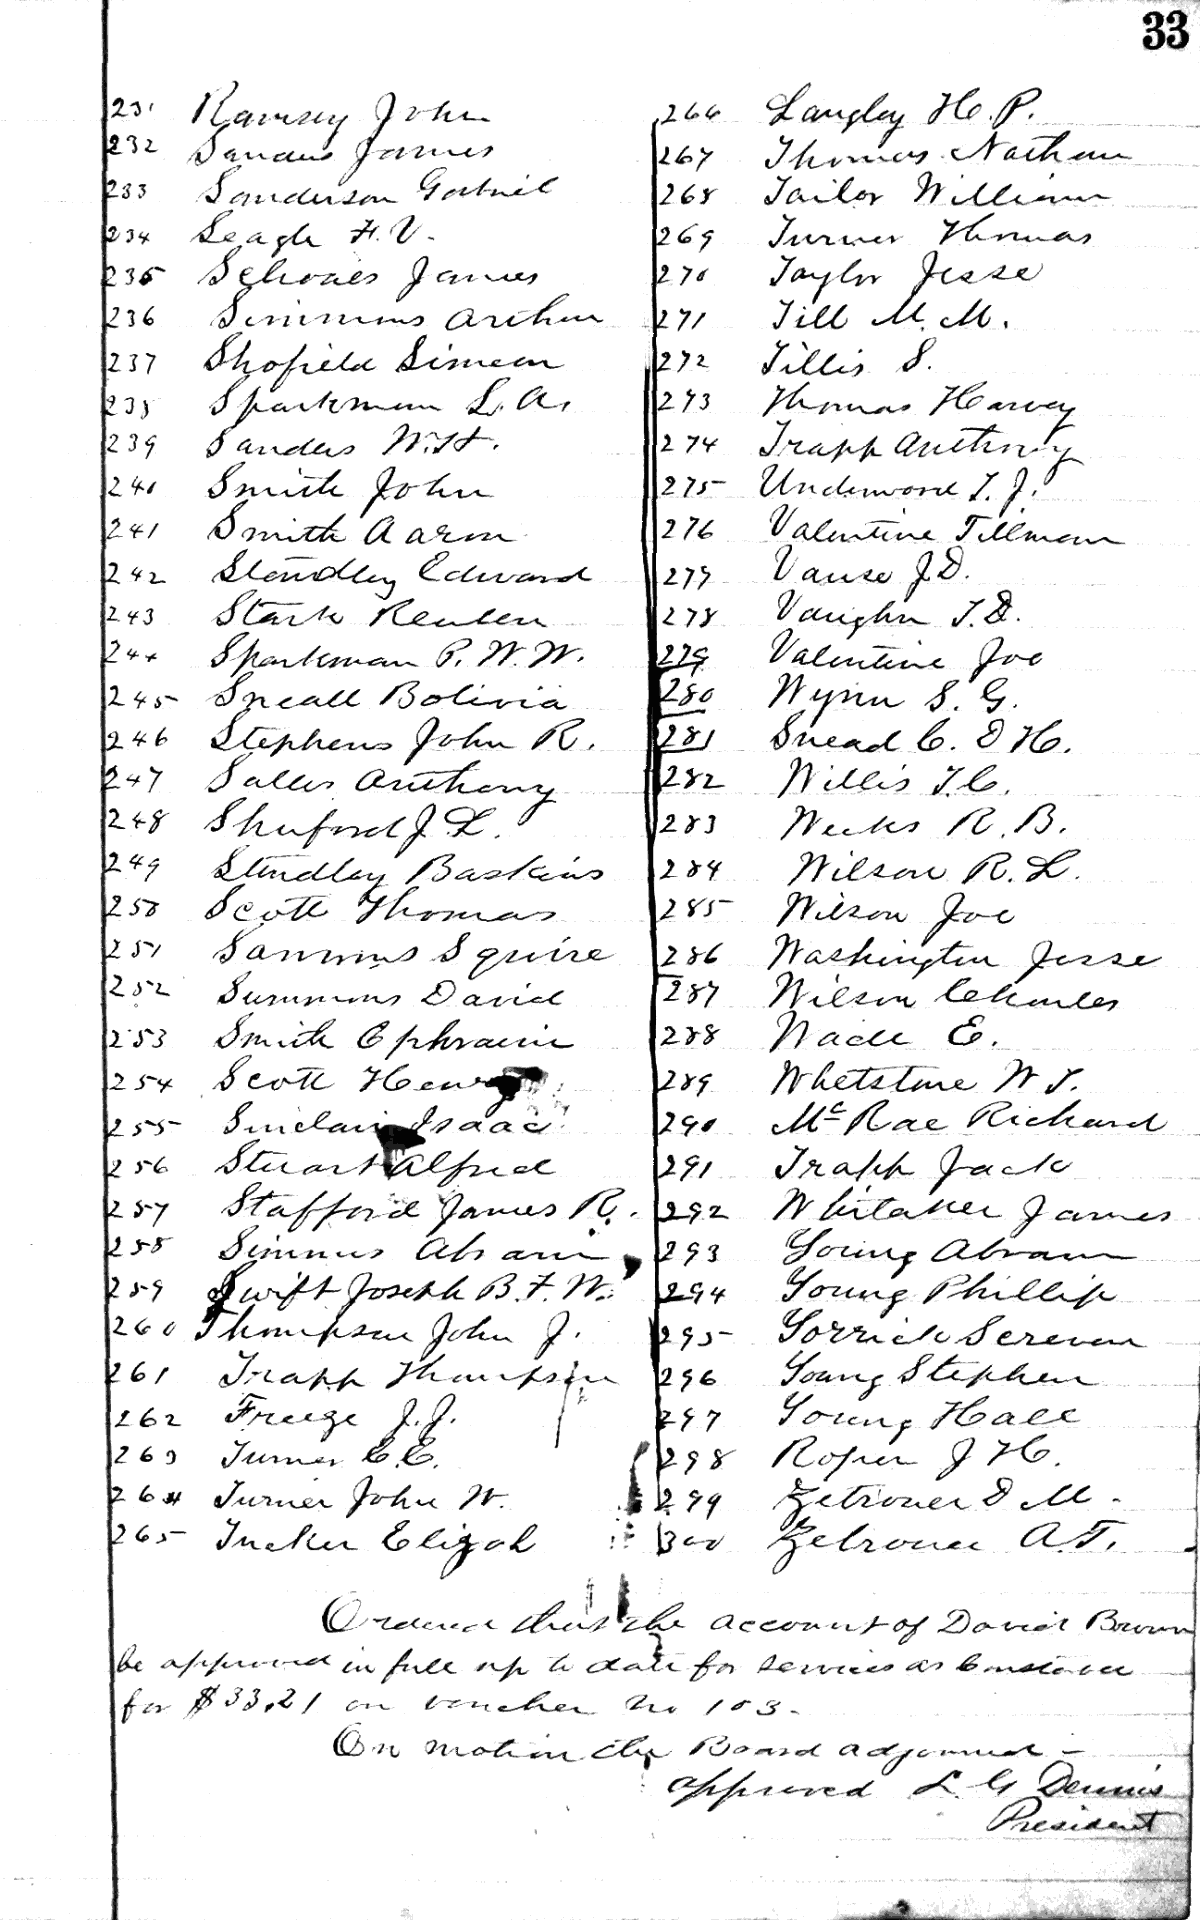 33
231 Ramsey John
232 Sanders James
233 Sanderson Gabriel
234 Seagle F. V.
235 Schoaes James
236 Simmons Arthur
237 Shofield Simeon
238 Sparkman L. A.
239 Sanders W. H.
240 Smith John
241 Smith Aaron
242 Standley Edward
243 Stark Reuben
244 Sparkman P. W. W.
245 Sneall Bolivia
246 Stephens John R.
247 Salles Anthony
248 Shuford J. L.
249 Standley Baskins
250 Scott Thomas
251 Sammis Squire
252 Summons David
253 Smith Ephraim
254 Scott Henry
255 Sinclair Isaac
256 Stuart Alfred
257 Stafford James R.
258 Simmis Abram
259 Swift Joseph B. F. W.
260 Thompson John J.
261 Trapp Thompson
262 Freeze J. J.
263 Turner E. E.
264 Turner John W.
265 Tucker Elizah
266 Langley H. P.
267 Thomas Nathan
268 Tailor William
269 Turner Thomas
270 Taylor Jesse
271 Till M. M.
272 Tillis S.
273 Thomas Harvey
274 Trapp Anthony
275 Underwood T. J.
276 Valentine Tillman
277 Vause J. D.
278 Vaughn T. D.
279 Valentine Joe
280 Wynn S. G.
281 Snead C. D H.
282 Willis T. C.
283 Weeks R. B.
284 Wilson R. L.
285 Wilson Joe
286 Washington Jesse
287 Wilson Charles
288 Wade E.
289 Whetstone W T.
290 McRae Richard
291 Trapp Jack
292 Whitaker James
293 Young Abram
294 Young Phillip
295 Yorrick Screven
296 Young Stephen
297 Young Hall
298 Roper J H.
299 Zetrouer D M.
300 Zetrouer A. T.
Ordered that the account of David Brown
be approved in full up to date for services as Constable
for $33.21 on voucher no 103.
On motion the Board adjourned -
approved L. G Dennis
President